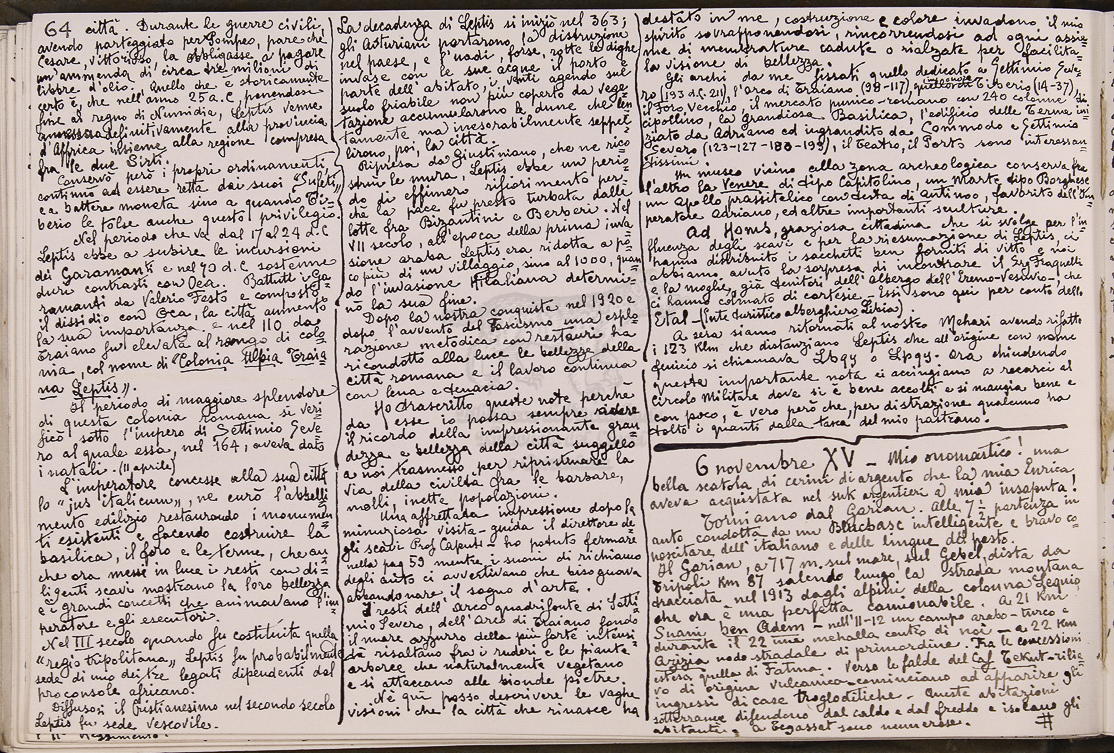 64 città. Durante le guerre civili,
avendo parteggiato per Pompeo, pare che
Cesare, vittorioso, la obbligasse a pagare
un'ammenda di circa tre milioni di
libbre d'olio. Quello che è storicamente
certo è, che nell'anno 25 a.C, ponendosi
fine al regno di Numidia, Leptis venne
annessa definitivamente alla provincia
d'Affrica insieme alla regione compresa
fra le due Sirti.
Conservò però i propri ordinamenti
continuò ad essere retta dai suoi "Sufeti"
e a battere moneta sino a quando Ti=
berio le tolse anche questo privilegio.
Nel periodo che va dal 17 al 24 d.C
Leptis ebbe a subire le incursioni
dei Garamanti e nel 70 d.C sostenne
duri contrasti con Oea. Battuti i Ga=
ramanti da Valerio Festo e composto
il dissidio con Oea, la città aumentò
la sua importanza e nel 110 da
Traiano fu elevata al rango di colo
nia, col nome di "Colonia Ulpia Traia
na Leptis".
Il periodo di maggiore splendore
di questa colonia romana si veri
ficò sotto l'impero di Settimio Seve
ro al quale essa, nel 164, aveva dato
i natali. (11 aprile)
L'imperatore concesse alla sua città
lo "jus italicum", ne curò l'abbelli
mento edilizio restaurando i monumen
ti esistenti e facendo costruire la
basilica, il foro e le terme, che an
che ora messi in luce i resti con di=
ligenti scavi mostrano la loro bellezza
e i grandi concetti che animavano l'im
peratore e gli esecutori.
Nel III secolo quando fu costituita quella
"regio tripolitana", Leptis fu probabilmente
sede di uno dei tre legati dipendenti dal
proconsole africano.
Diffusosi il Cristianesimo nel secondo secolo
Leptis fu sede vescovile.
La decadenza di Leptis si iniziò nel 363;
gli Asturiani portarono la distruzione
nel paese, e l'uadi, forse, rotte le dighe
invase con le sue acque il porto e
parte dell'abitato, i venti agendo sul
suolo friabile non più coperto da vege
tazione accumularono le dune che len
tamente ma inesorabilmente seppel=
lirono, poi, la città.
Ripresa da Giustiniano, che ne rico
struì le mura, Leptis ebbe un perio
do di effimero rifiorimento per=
chè la pace fu presto turbata dalle
lotte fra Bizantini e Berberi. Nel
VII secolo, all'epoca della prima inva
sione araba Leptis era ridotta a po
co più di un villaggio, sino al 1000, quan
do l'invasione Hilaliana determi=
nò la sua fine.
Dopo la nostra conquista nel 1920 e
dopo l'avvento del Fascismo una esplo
razione metodica con restauri ha
ricondotto alla luce le bellezze della
città romana e il lavoro continua
con lena e tenacia.
Ho trascritto queste note perchè
da esse io possa sempre ridare
il ricordo della impressionante gran
dezza e bellezza della città suggello
a noi trasmesso per ripristinare la
via della civiltà fra le barbare,
molli, inette popolazioni.
Una affrettata impressione dopo la
minuziosa visita, guida il direttore de
gli scavi Prof Caputo - ho potuto fermare
nella pag 59 mentre i suoni di richiamo
degli auto ci avvertivano che bisognava
abbandonare il sogno d'arte.
I resti dell'Arco quadrifonte di Setti
mio Severo, dell'Arco di Traiano fondo
il mare azzurro dalla più forte intensi
tà risaltano fra i ruderi e le piante
arboree che naturalmente vegetano
e si attaccano alle bionde pietre.
Nè qui posso descrivere le vaghe
visioni che la città che rinasce ha
destato in me, costruzione e colore invadono il mio
spirito sovrapponendosi, rincorrendosi ad ogni assie
me di membrature cadute o rialzate per facilita
la visione di bellezza.
Gli archi da me fissati quello dedicato a Settimio Seve=
ro (193 d.C. 211), l'arco di Traiano (98-117), Tiberio (14-37),
il Foro Vecchio, il mercato punico-romano con 240 colonne di
cipollino, la grandiosa Basilica, l'edificio delle Terme ini
ziato da Adriano ed ingrandito da Commodo e Settimio
Severo (123-127-188-193), il Teatro, il Porto sono interessan
tissimi.
Un museo vicino alla zona archeologica conserva fra
l'altro la Venere di tipo Capitolino, un Marte tipo Borghese
un Apollo prassitelico con testa di Antinoo, favorito dell'Im
peratore Adriano, ed altre importanti sculture.
Ad Homs, graziosa cittadina che si svolge per l'in
fluenza degli scavi e per la riesumazione di Leptis, ci
hanno distribuito i sacchetti ben forniti di vitto e noi
abbiamo avuto la sorpresa di incontrare il Sig Fraquelli
e la moglie, già tenitori dell'Albergo dell'Eremo-Vesuvio, che
ci hanno colmato di cortesie - Essi sono qui per conto dello
Etal - (Ente turistico alberghiero Libia).
A sera siamo ritornati al nostro Mehari avendo rifatto
i 123 Klm che distanziano Leptis che all'origine con nome
fenicio si chiamava Lbqy o Lpqy. Ora chiudendo
queste importante nota ci accingiamo a recarci al
Circolo Militare dove si è bene accolti e si mangia bene e
con poco, è vero però che, per distrazione qualcuno ha
tolto i guanti dalla tasca del mio paltrano.
6 novembre XV - Mio onomastico! una
bella scatola di cerini di argento che la mia Enrica
aveva acquistata nel suk argentieri a mia insaputa!
Torniamo dal Garian. Alle 7 - partenza in
auto condotta da un Blucbasc intelligente e bravo co
noscitore dell'italiano e delle lingue del posto.
Il Garian, a 717 m. sul mare, sul Gebel, dista da
Tripoli Km 87 salendo lungo la strada montana
tracciata nel 1913 dagli alpini della colonna Lequio
che ora è una perfetta camionabile. A 21 Km
Suani ben Adem - nell'11-12 un campo arabo-turco e
durante il 22 una mehalla contro di noi - a 22 Km
Azizia nodo stradale di primordine. Fra le concessioni
estesa quella di Fatma. Verso le falde del Caf Tekut - rilie
vo di origine vulcanica - cominciano ad apparire gli
ingressi di case trogloditiche - Queste abitazioni
sotterranee difendono dal caldo e dal freddo e isolano gli
abitanti. a Tegassat sono numerose. #